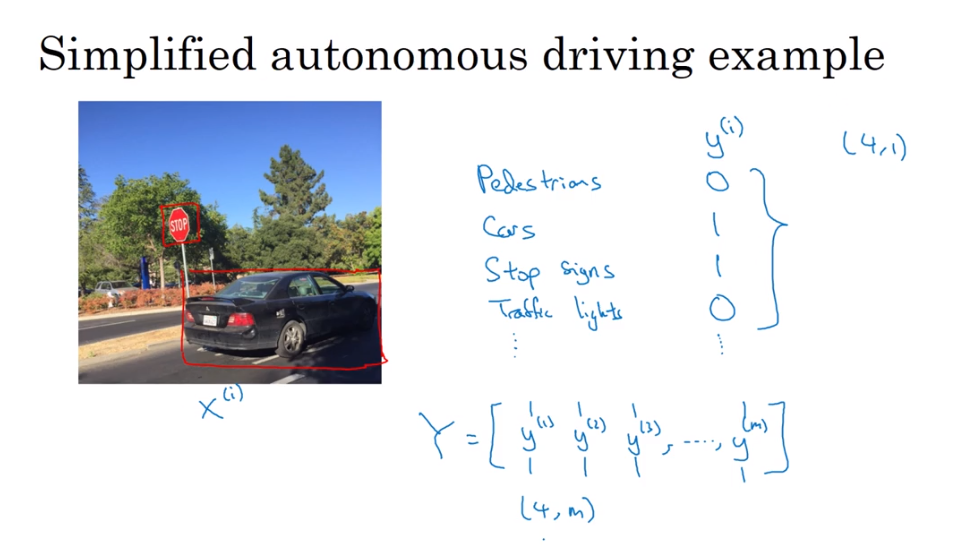 Simplified autonomous driving example
STOP
x^(i)
y^(i) (4,1)
Pedestrians 0
Cars 1
Stop signs 1
Traffic lights 0
⋮ ⋮
Y = [ y^(1) y^(2) y^(3), ...., y^(m) ]
(4, m)